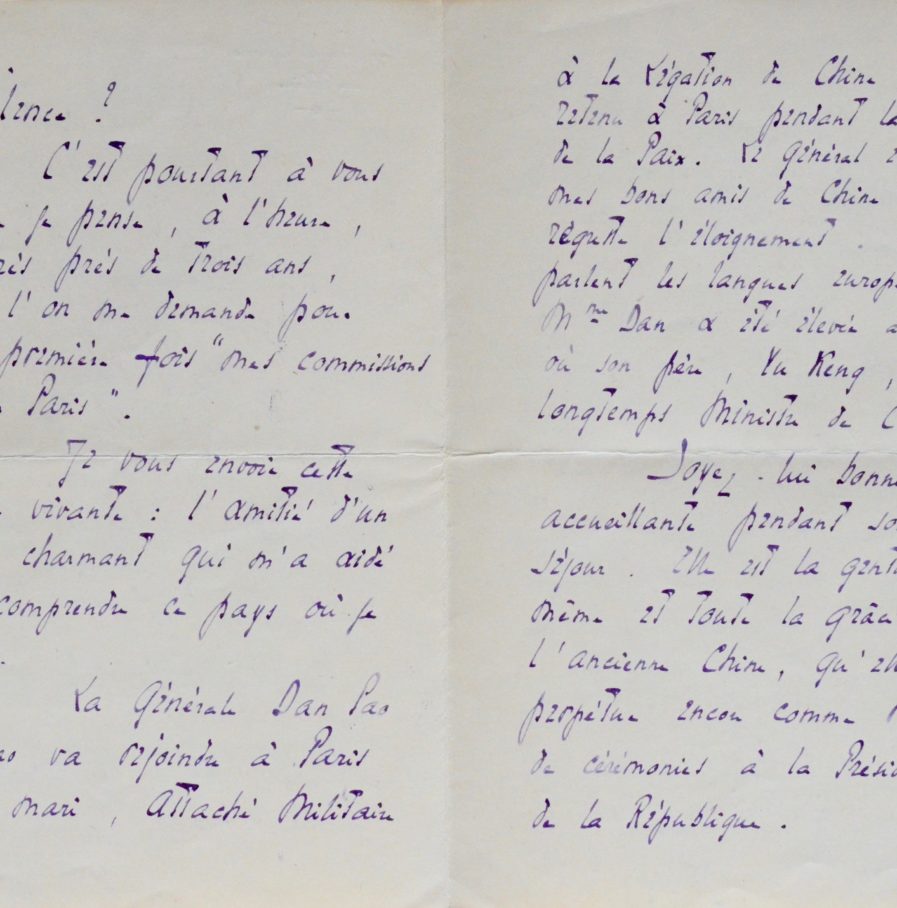 silence ?
C'est pourtant à vous
que je pense, à l'heure,
après près de trois ans,
où l'on me demande pour
première fois "mes commissions
Paris".
Je vous envoie cette
vivante : l'amitié d'un
charmant qui m'a aidé
comprendre ce pays où je
La Générale Dan Pao
va rejoindre à Paris
mari, Attaché Militaire
à la Légation de Chine
retenu à Paris pendant la
de la Paix. Le Général
mes bons amis de Chine
regrette l'éloignement.
parlent les langues europ
Mme Dan a été élevée a
où son père, Yu Keng,
longtemps Ministre de C
Soyez-lui bonne
accueillante pendant so
séjour. Elle est la gent
même et toute la grâce
l'ancienne Chine, qu'el
perpétue encore comme
de cérémonies à la Prési
de la République.